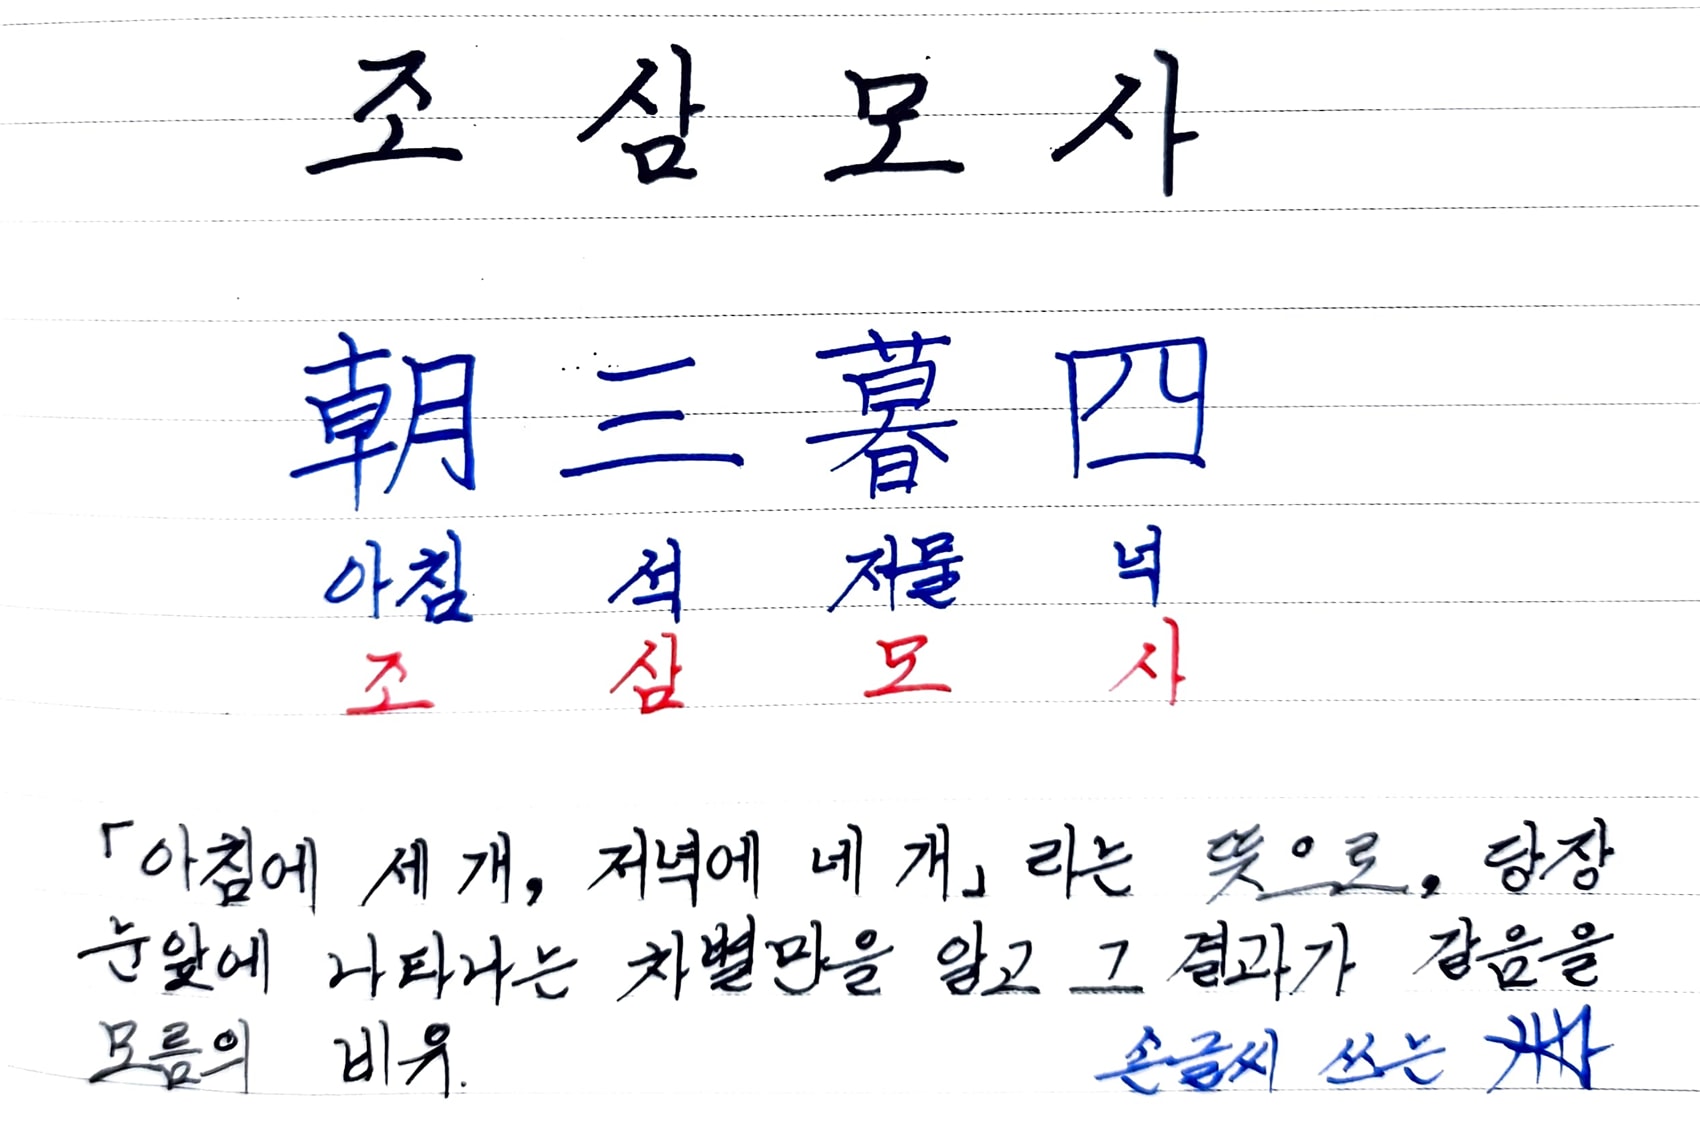 조 삼 모 사
朝 三 暮 四
아침 석 저물 넉
조 삼 모 사
「아침에 세 개, 저녁에 네 개」 라는 뜻으로, 당장
눈앞에 나타나는 차별만을 알고 그 결과가 같음을
모름의 비유.
손글씨 쓰는